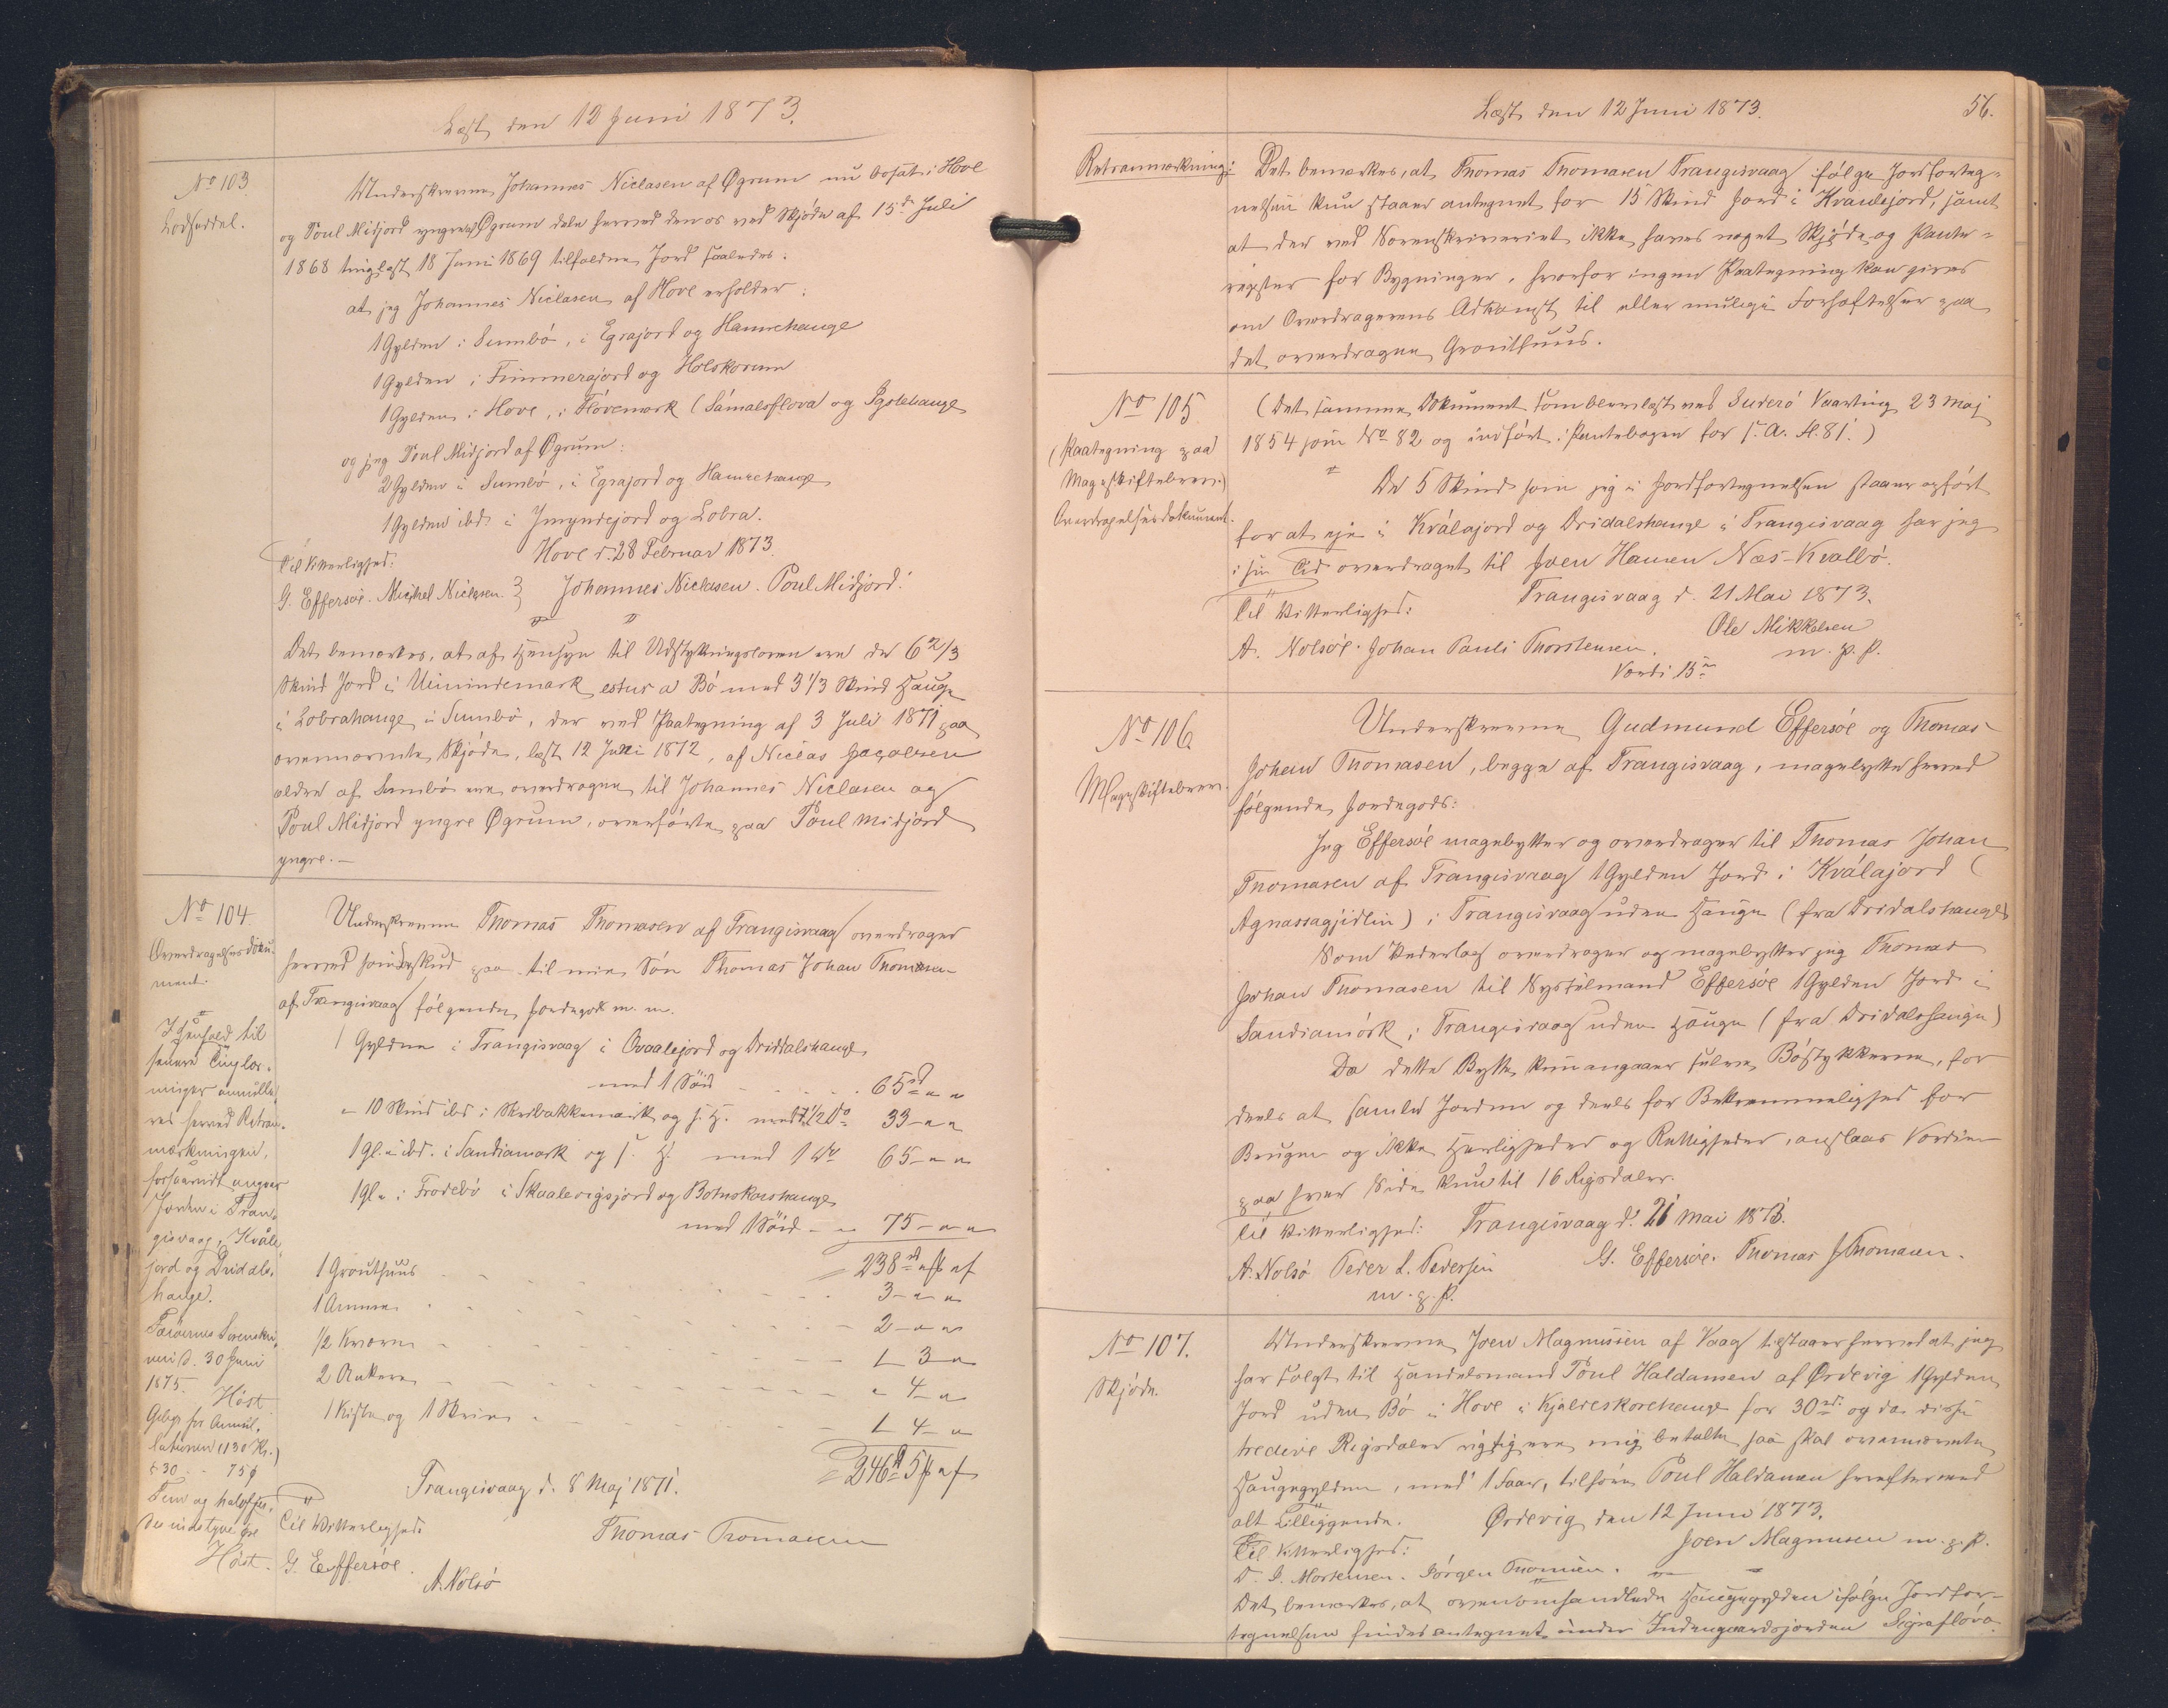 Læst den 12 Juni 1873.
No 103
Lodseddel.
Underskrevne Johannes Niclasen af Øgrum nu bosat i Hove
og Poul Midjord yngre af Øgrum dele herved den os ved Skjøde af 15d Juli
1868 tinglæst 18 Juni 1869 tilfaldne Jord saaledes:
at jeg Johannes Niclasen af Hove erholder:
1 Gylden i Sumbö, i Egrajord og Hamrehauge
1 Gylden i Fimmerajord og Holskorum
1 Gylden i Hove, i Flövemark (Sámalsflova) og
og jeg Poul Midjord af Øgrum:
2 Gylden i Sumbö, i Egrajord og Hamrehauge
1 Gylden ibd. i Jmyndejord og Lobra.
Hove d. 28 Februar 1873.
Til Vitterlighed:
G. Effersöe. Michel Niclasen } Johannes Niclasen. Poul Midjord.
Det bemærkes, at af Hensyn til Udstykningsloven ere de 6 2/3
Skind Jord i Uimindemark estur a Bö med 3 1/3 Skind Hauge
i Lobrahauge i Sumbö, der ved Paategning af 3 Juli 1871 paa
ovennævnte Skjöde, læst 12 Juni 1872, af Niclas Jacobsen
ældre af Sumbö ere overdragne til Johannes Niclasen og
Poul Midjord yngre Øgrum, overförte paa Poul Midjord
yngre.—
No 104.
Overdragelsesdoku-
ment.
I Henhold til
senere Tinglæs-
ninger annulle-
res herved Retsan-
mærkningen,
forsaavidt angaar
Jorden i Tran-
gisvaag, Kvåle-
jord og Dridals-
hauge.
Færöernes Sorenskri-
veri d. 30 Juni
1875.
Höst
Gebyr for Annul-
lationen (1130 Kr.)
§ 30 - - 75 ϕ
Fem og halvfjer-
dsindstyve öre
Höst.
Underskrevne Thomas Thomasen af Trangisvaag overdrager
herved som Forskud paa til min Sön Thomas Johan Thomasen
af Trangisvaag følgende Jordegods m. m.
1 Gylden i Trangisvaag i Qvaalejord og Dridalshauge
med 1 Söid - - - 65rd " "
" 10 Skind ibd. i Skarbakkemark og s. H. med 1/2 do 33 - " "
1 Gl. " ibd. i Sandiamark og s. H. med 1 do 65 - " "
1 Gl. " i Frodebö i Skaalevigsjord og Botnskorshauge
med 1 Söid - " 75 - " "
238rd " ß " s
1 Grouthuus - - - 3 - " "
1 Amme - - - 2 - " "
1/2 Kværn - - - 1 - 3 - "
2 Ankere - - - " 4 - "
1 Kiste og 1 Skrin - - - 1 - 4 - "
246rd 5 ß " s
Trangisvaag d. 8 Maj 1871.
Til Vitterlighed:
Thomas Thomasen
G. Effersöe.
A. Nolsö
Læst den 12 Juni 1873.
56.
Retsanmærkning:
Det bemærkes, at Thomas Thomasen Trangisvaag ifølge Jordforteg-
nelsen kun staaer antegnet for 15 Skind Jord i Kvaalejord, samt
at der ved Sorenskriveriet ikke haves noget Skjöde og Pante-
register for Bygninger, hvorfor ingen Paategning kan gives
om Overdragerens Adkomst til eller mulige Forhæftelser paa
det overdragne Grouthuus.
No 105
(Paategning paa
Mageskiftebrev.)
Overdragelsesdokument.
(Det samme Dokument som blev læst ved Suderö Vaarting 23 Maj
1854 som No 82 og indfört i Pantebogen for s. A. S. 81.)
De 5 Skind som jeg i Jordfortegnelsen staaer opfört
for at eje i Kválajord og Dridalshauge i Trangisvaag har jeg
i sin Tid overdraget til Joen Hansen Næs-Kvalbö.
Trangisvaag d. 21 Mai 1873.
Til Vitterlighed:
Ole Mikkelsen
A. Nolsöe. Johan Pauli Thorstensen. m. p. P.
Værdi 15rd
No 106
Mageskiftebrev.
Underskrevne Gudmund Effersöe og Thomas
Johan Thomasen, begge af Trangisvaag, magebytte herved
følgende Jordegods:
Jeg Effersöe magebytter og overdrager til Thomas Johan
Thomasen af Trangisvaag 1 Gylden Jord i Kválajord (
Agnassagjidlin) i Trangisvaag uden Hauge (fra Dridalshauge)
Som Vederlag overdrager og magebytter jeg Thomas
Johan Thomasen til Sysselmand Effersöe 1 Gylden Jord i
Sandiamörk, i Trangisvaag uden Hauge (fra Dridalshauge)
Da dette Bytte kun angaaer selve Böstykkerne, for
deels at samle Jorden og deels for Bekvemmelighed for
Brugen og ikke Herligheder og Rettigheder, anslaaes Værdien
paa hver Side kun til 16 Rigsdaler.
Til Vitterlighed: Trangisvaag d. 21 Mai 1873.
A. Nolsö Peder L. Pedersen G. Effersöe. Thomas J. Thomasen.
m. p. P.
No 107.
Skjöde.
Underskrevne Joen Magnussen af Vaag tilstaaer herved at jeg
har solgt til Handelsmand Poul Haldansen af Ördevig 1 Gylden
Jord uden Bö i Hove i Kjalreskorehauge for 30rd. og da disse
tredive Rigsdaler rigtig ere mig betalte saa skal ovennævnte
Haugegylden, med 1 Faar, tilhøre Poul Haldansen herefter med
alt Tilliggende. Ördevig den 12 Juni 1873.
Til Vitterlighed: Joen Magnussen m. p. P.
D. J. Mortensen. Jörgen Thomsen.
Det bemærkes, at ovenomhandlede Haugegylden ifølge Jordfor-
tegnelsen findes antegnet under Indengaardsjorden Sigraflöva.